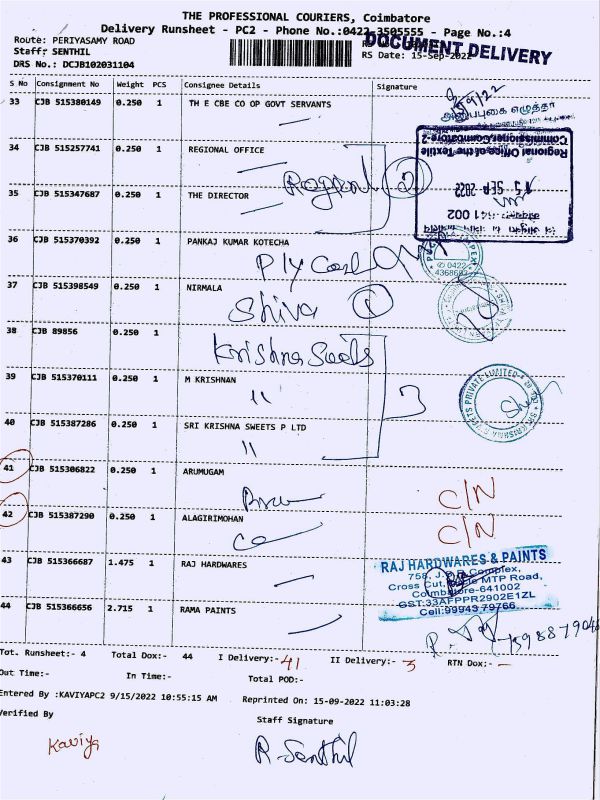 THE PROFESSIONAL COURIERS, Coimbatore
Delivery Runsheet - PC2 - Phone No.:0422-3505555 - Page No.:4
Route: PERIYASAMY ROAD
DOCUMENT DELIVERY
Staff: SENTHIL
RS Date: 15-Sep-2022
DRS No.: DCJB102031104
S No Consignment No Weight PCS Consignee Details Signature
33 CJB 515380149 0.250 1 TH E CBE CO OP GOVT SERVANTS
34 CJB 515257741 0.250 1 REGIONAL OFFICE
Regional Office of the Textile
Commissioner, Coimbatore-2
15 SEP 2022
641 002
35 CJB 515347687 0.250 1 THE DIRECTOR
2
36 CJB 515370392 0.250 1 PANKAJ KUMAR KOTECHA
0422
4368681
37 CJB 515398549 0.250 1 NIRMALA
Shiva 1
38 CJB 89856 0.250 1
Krishna Sweets
39 CJB 515370111 0.250 1 M KRISHNAN
11
3
40 CJB 515387286 0.250 1 SRI KRISHNA SWEETS P LTD
11
41 CJB 515306822 0.250 1 ARUMUGAM
C/N
42 CJB 515387290 0.250 1 ALAGIRIMOHAN
C/N
43 CJB 515366687 1.475 1 RAJ HARDWARES
RAJ HARDWARES & PAINTS
Complex,
Cross Cut, MTP Road,
Coimbatore-641002
GST:33AFPPR2902E1ZL
Cell:99943 79766
44 CJB 515366656 2.715 1 RAMA PAINTS
Tot. Runsheet:- 4 Total Dox:- 44 I Delivery:- 41 II Delivery:- 3 RTN Dox:- -
Out Time:- In Time:- Total POD:-
Entered By :KAVIYAPC2 9/15/2022 10:55:15 AM Reprinted On: 15-09-2022 11:03:28
Verified By Staff Signature
Kaviya R. Senthil